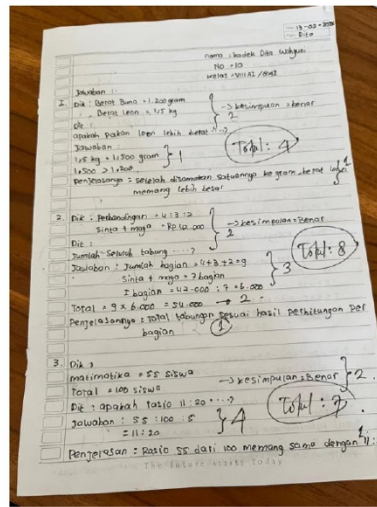 13-02-2026
Dita
nama : kadek Dita Wahyuni
No = 10
kelas = VIII A2 / 8A2
Jawaban :
1. Dik : Berat Bima = 1.200 gram
Berat leon = 1,5 kg
-> kesimpulan = benar
2
Dit :
apakah Pakan leon lebih berat ...?
Jawaban :
1,5 kg = 1.500 gram
1.500 > 1.200
1
Total : 4
Penjelasanya : setelah disamakan satuannya ke gram berat leon
memang lebih besar
1
2. Dik : Perbandingan = 4:3:2
Sinta + maya = Rp 42.000
-> kesimpulan = Benar
2
Dit :
Jumlah seluruh tabung ....?
Jawaban : Jumlah bagian = 4+3+2 = 9
Sinta + maya = 7 bagian
1 bagian = 42.000 : 7 = 6.000
3
Total : 8
Total = 9 x 6.000 = 54.000 -> 2
Penjelasannya : Total tabungan sesuai hasil Perhitungan Per
bagian
1
3. Dik :
matimatika = 55 siswa
Total = 100 siswa
-> kesimpulan = Benar
2
Dit : apakah rasio 11 : 20 ...?
Jawaban : 55 : 100 : 5
= 11 : 20
4
Total : 7
Penjelasan : Rasio 55 dari 100 memang sama dengan 11:
1
The future starts today